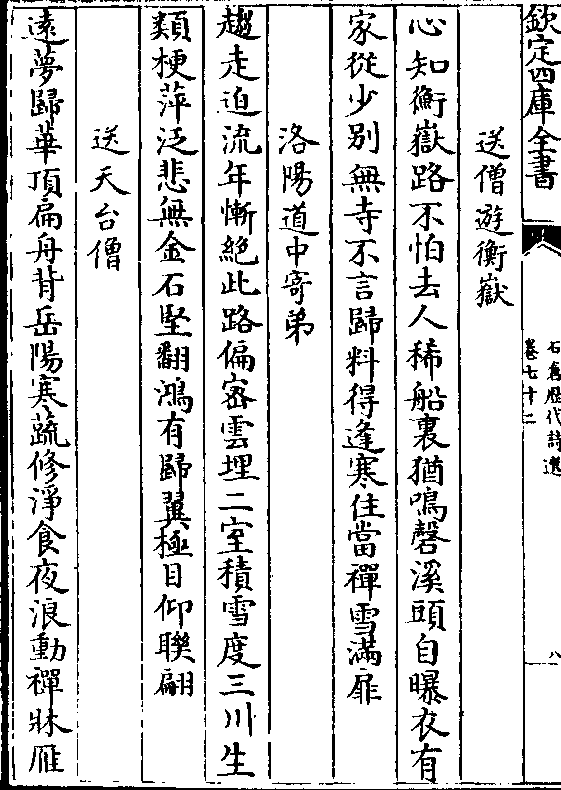 欽定四庫全書
石倉歷代詩選
卷七十二
八
送僧遊衡嶽
心知衡嶽路不怕去人稀船裏猶鳴磬溪頭自曝衣有
家從少別無寺不言歸料得逢寒住當禪雪滿扉
洛陽道中寄弟
趨走迫流年慚絶此路偏密雲埋二室積雪度三川生
類梗萍泛悲無金石堅翻鴻有歸翼極目仰聯翩
送天台僧
遠夢歸華頂扁舟背岳陽寒蔬修淨食夜浪動禪牀雁